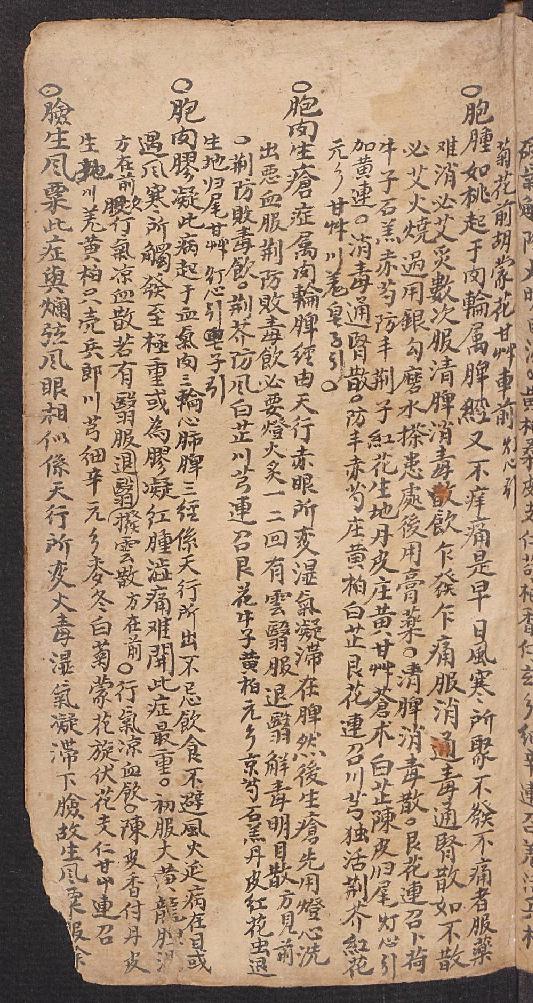 菊花前胡蒙花甘艸車前 灯心引
○胞腫如桃起于肉輪属脾經又不痒痛是早日風寒所聚不發不痛者服藥
难消必艾炙數次服清脾消毒散飲乍發乍痛服消通毒通腎散如不散
必艾火燒過用銀勾磨水搽患處後用膏藥○清脾消毒散○艮花連召卜荷
牛子石羔赤芍防丰荆子紅花生地丹皮庄黄甘艸蒼术白芷陳皮归尾灯心引
加黄連○消毒通腎散○防丰赤芍庄黄柏白芷艮花連召川芎独活荆芥紅花
元乡甘艸川羌 引○
○胞肉生瘡症属肉輪脾經由天行赤眼所变湿氣凝滞在脾然後生瘡先用燈心洗
出悪血服荆防敗毒飲必要燈火炙一二回有雲翳服退翳解毒明目散方見前
○荆防敗毒飲○荆芥防风白芷川芎連召艮花牛子黄柏元乡京芍石羔丹皮紅花虫退
生地归尾甘艸 灯心引
○胞肉膠凝此病起于血氣肉三輪心肺脾三經係天行所出不忌飲食不避風火延病在目或
遇风寒所觸發至極重或為膠凝紅腫澁痛难開此症最重○初服大黄龍胆湯
方在前次服行氣凉血散若有翳服退翳撥雲散方在前○行氣凉血飲○陳皮香付丹皮
生地川羌黄柏只壳兵郎川芎细辛元乡麥冬白菊蒙花旋伏花支仁甘艸連召
○臉生风粟此症與爛弦风眼相似係天行所变火毒湿氣凝滞下臉故生风粟服